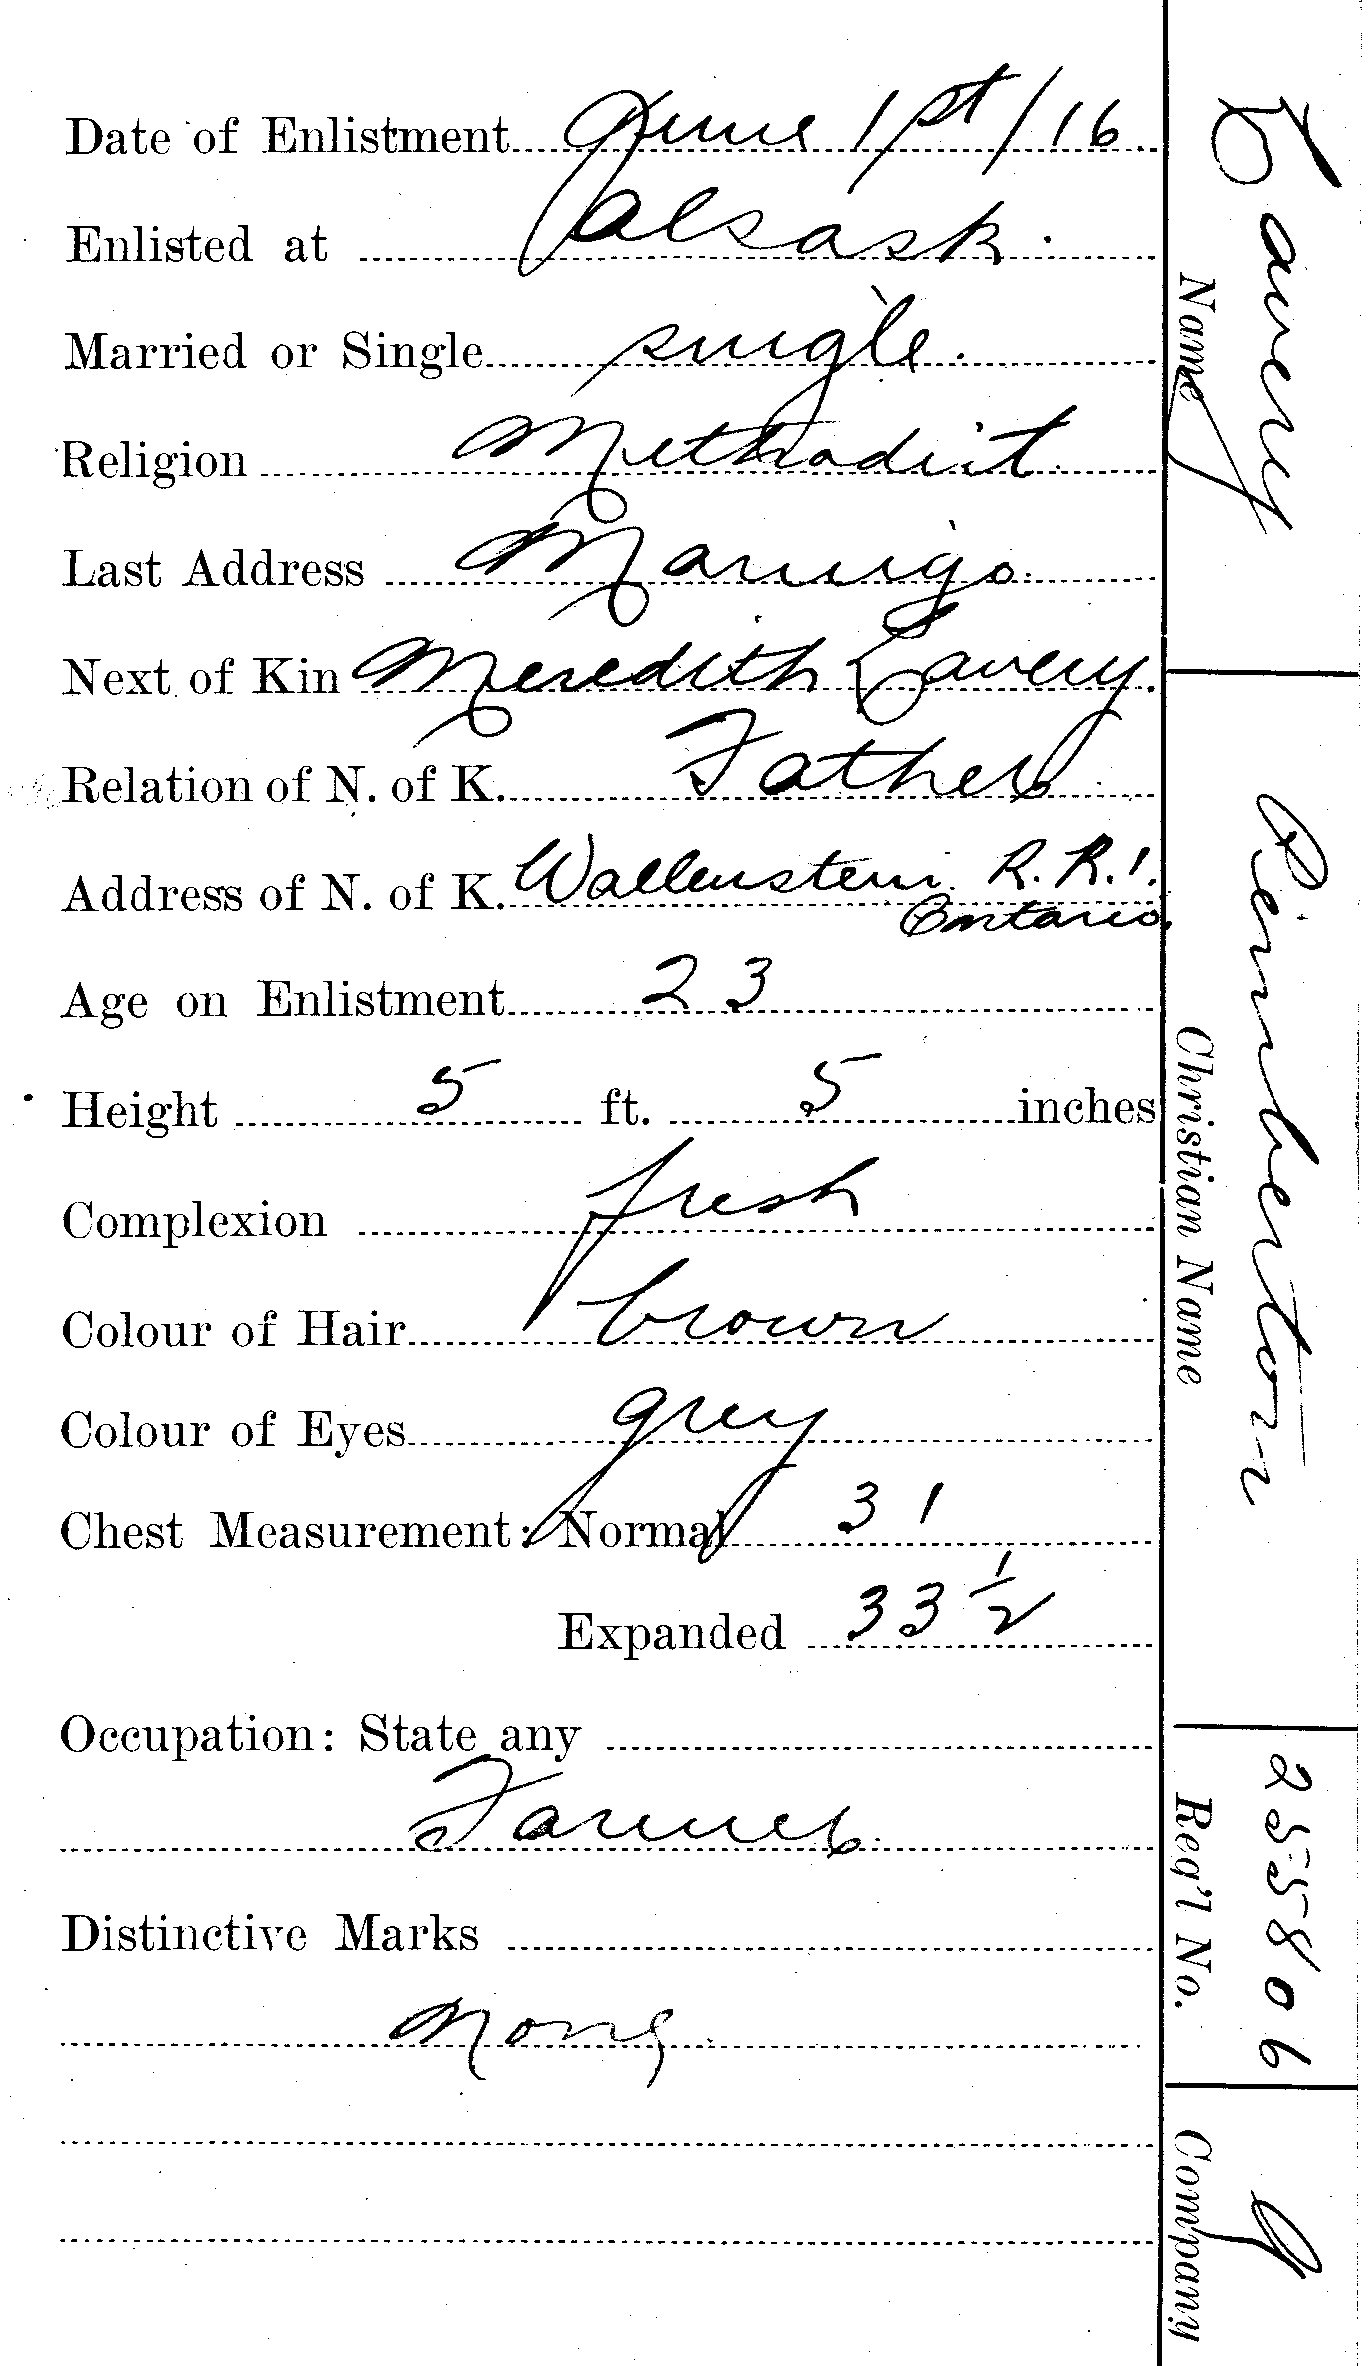 Date of Enlistment June 1st/16.
Enlisted at Alsask.
Married or Single single.
Religion Methodist
Last Address
Next of Kin Meredith Lavery.
Relation of N. of K. Father
Address of N. of K. Wallenstein R.R.1.
Ontario.
Age on Enlistment 23
Height 5 ft. 5 inches
Complexion fresh
Colour of Hair brown
Colour of Eyes grey
Chest Measurement: Normal 31
Expanded 33 ½
Occupation: State any
Farmer
Distinctive Marks
None
Lavery
Name
Pemberton
Christian Name
255806
Reg'l No.
Company